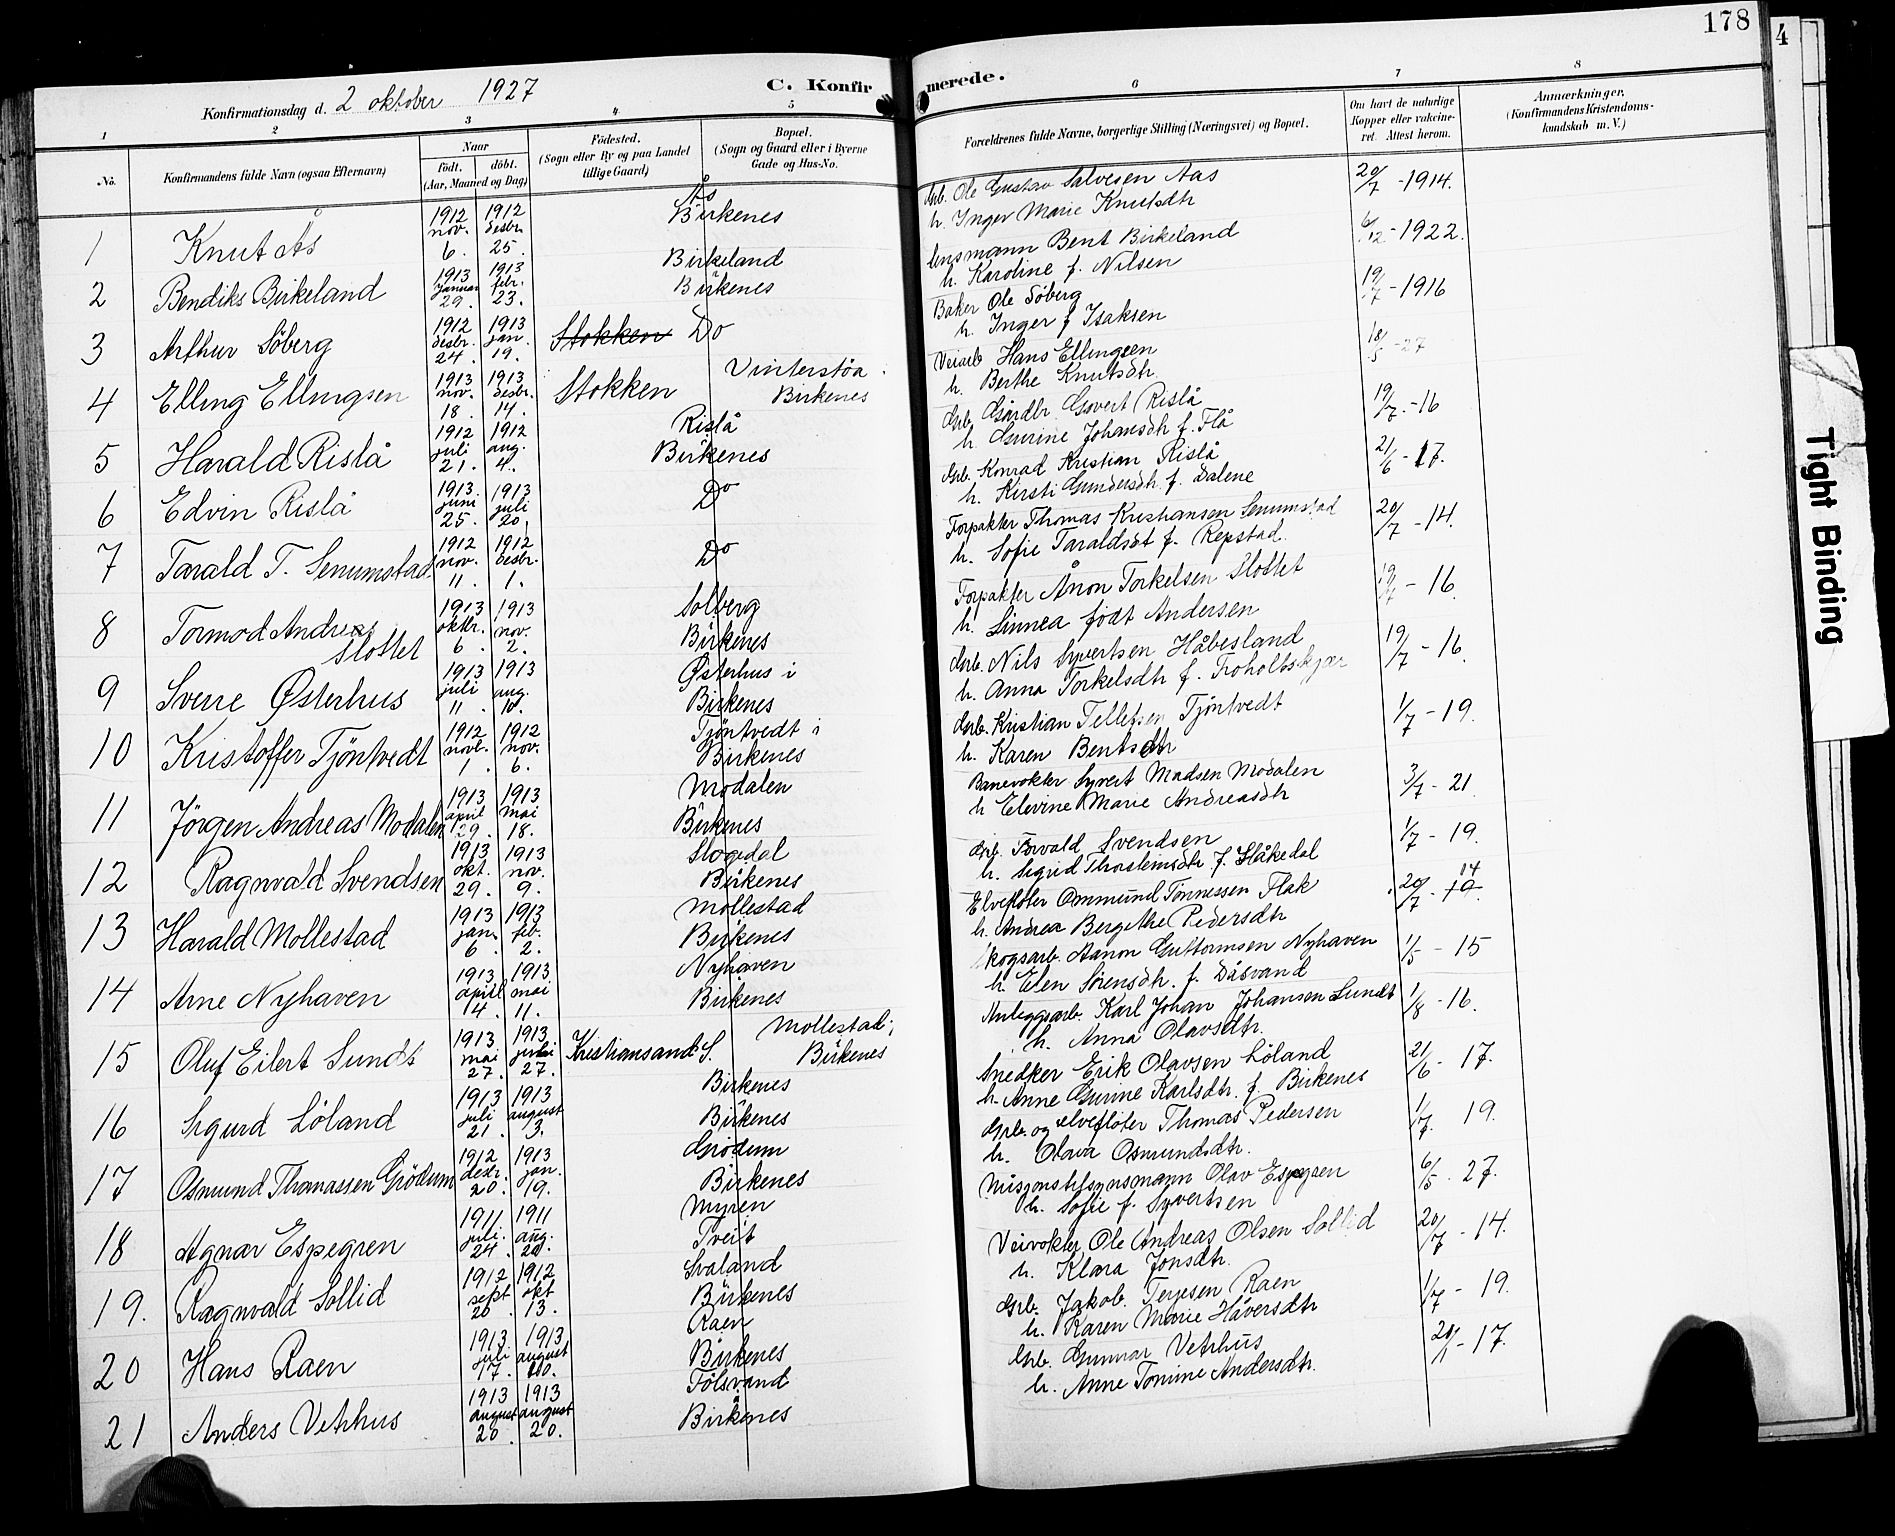 178
4
C. Konfirmerede.
Konfirmationsdag d. 2 oktober 1927
1 2 3 4 5 6 7 8
No.
Konfirmandens fulde Navn (ogsaa Efternavn)
Naar
født. døbt.
(Aar, Maaned og Dag)
Fødested.
(Sogn eller By og paa Landet
tillige Gaard)
Bopæl.
(Sogn og Gaard eller i Byerne
Gade og Hus-No.
Forældrenes fulde Navne, borgerlige Stilling (Næringsvei) og Bopæl.
Om havt de naturlige
Kopper eller vakcine-
ret. Attest herom.
Anmærkninger.
(Konfirmandens Kristendoms-
kundskab m. V.)
1 Knut Ås 1912 nov. 6. 1912 desbr. 25. Ås Birkenes
Grb. Ole Gustav Salvesen Aas
h. Inger Marie Knutsdtr 20/7 - 1914.
2 Bendiks Birkeland 1913 januar 29. 1913 febr. 23. Birkeland Birkenes
lensmann Bent Birkeland
h. Karoline f. Nilsen 6/12 - 1922.
3 Arthur Söberg 1912 desbr. 24. 1913 jan. 19. Stokken Do
Baker Ole Söberg
h. Inger f Isaksen 19/7 - 1916
4 Elling Ellingsen 1913 nov. 18. 1913 desbr. 14. Stokken Vinterstöa Birkenes
Veiarb Hans Ellingsen
h. Berthe Knutsdtr. 18/5 - 27
5 Harald Rislå 1912 juli 21. 1912 aug. 4. Rislå Birkenes
Grb. Gårdbr. Govert Rislå
h. Gurine Johansdtr f. Flå 19/7 - 16
6 Edvin Rislå 1913 juni 25. 1913 juli 20. Do
Grb. Konrad Kristian Rislå
h. Kirsti Gundersdtr. f. Dalene 21/6 - 17.
7 Tarald T. Senumstad 1912 nov. 11. 1912 desbr. 1. Do
Forpakter Thomas Kristiansen Senumstad
h. Sofie Taraldsdt f. Repstad. 20/7 - 14.
8 Tormod Andreas Slottet 1913 oktbr. 6. 1913 nov. 2. Solberg Birkenes
Forpakter Ånon Torkelsen Slottet
h. Linnea född Andersen 19/7 - 16
9 Sverre Østerhus 1913 juli 11. 1913 aug. 10. Østerhus i Birkenes
Grb. Nils Syvertsen Håbesland
h. Anna Torkelsdtr f. Troholtskjær 19/7 - 16.
10 Kristoffer Tjöntvedt 1912 1. 1912 nov. 6. Tjöntvedt i Birkenes
Grb. Kristian Tellefsen Tjöntvedt
h. Karen Bentsdtr 1/7 - 19.
11 Jörgen Andreas Modalen 1913 april 29. 1913 mai 18. Modalen Birkenes
Banevokter Syvert Madsen Modalen
h Elevine Marie Andreasdtr 3/7 - 21
12 Ragnvald Svendsen 1913 okt. 29. 1913 nov. 9. Slogedal Birkenes
Grb. Torvald Svendsen
h. Sigrid Thorsteinsdtr f. Håkedal 1/7 - 19.
13 Harald Mollestad 1913 jan. 6. 1913 feb. 2. Mollestad Birkenes
Elvefløter Ommund Tönnessen Flak
h. Andrea Bergithe Pedersdtr 20/7 - 19 14
14 Arne Nyhaven 1913 april 14. 1913 mai 11. Nyhaven Birkenes
Skogsarb. Aanon Guttormsen Nyhaven
h. Elen Sørensdtr. f. Dåsvand 1/5 - 15
15 Oluf Eilert Sundt 1913 mai 27. 1913 27. Kristiansand S. Mollestad, Birkenes
Anleggsarb. Karl Johan Johansen Sundt
h. Anna Olavsdtr. 1/8 - 16.
16 Sigurd Löland 1913 juli 21. 1913 august 3. Birkenes Birkenes
Snedker Erik Olavsen Löland
h. Anne Gurine Karlsdtr. f. Birkenes 21/6 - 17.
17 Osmund Thomassen Grödum 1912 desbr. 20. 1913 jan. 19. Grödum Birkenes
Grb. og elvefløter Thomas Pedersen
h. Olava Osmundsdtr. 1/7 19.
18 Agnar Espegren 1911 juli. 24. 1911 aug. 20. Myren Tveit
Misjonstilsynsmann Olav Espegren
h. Sofie f. Syvertsen 6/5 . 27.
19. Ragnvald Sollid 1912 sept 20. 1912 okt 13. Svaland Birkenes
Veivokter Ole Andreas Olsen Sollid
h. Klara Jonsdtr. 20/7 - 14.
20 Hans Raen 1913 juli 17. 1913 august 10. Raen Birkenes
Grb. Jakob Terjesen Raen
h. Karen Marie Håversdtr 1/7 - 19.
21 Anders Vetrhus 1913 august 20. 1913 august 20. Fölsvand Birkenes
Grb. Gunnar Vetrhus
h. Anne Tomine Andersdtr. - 17.
Tight Binding